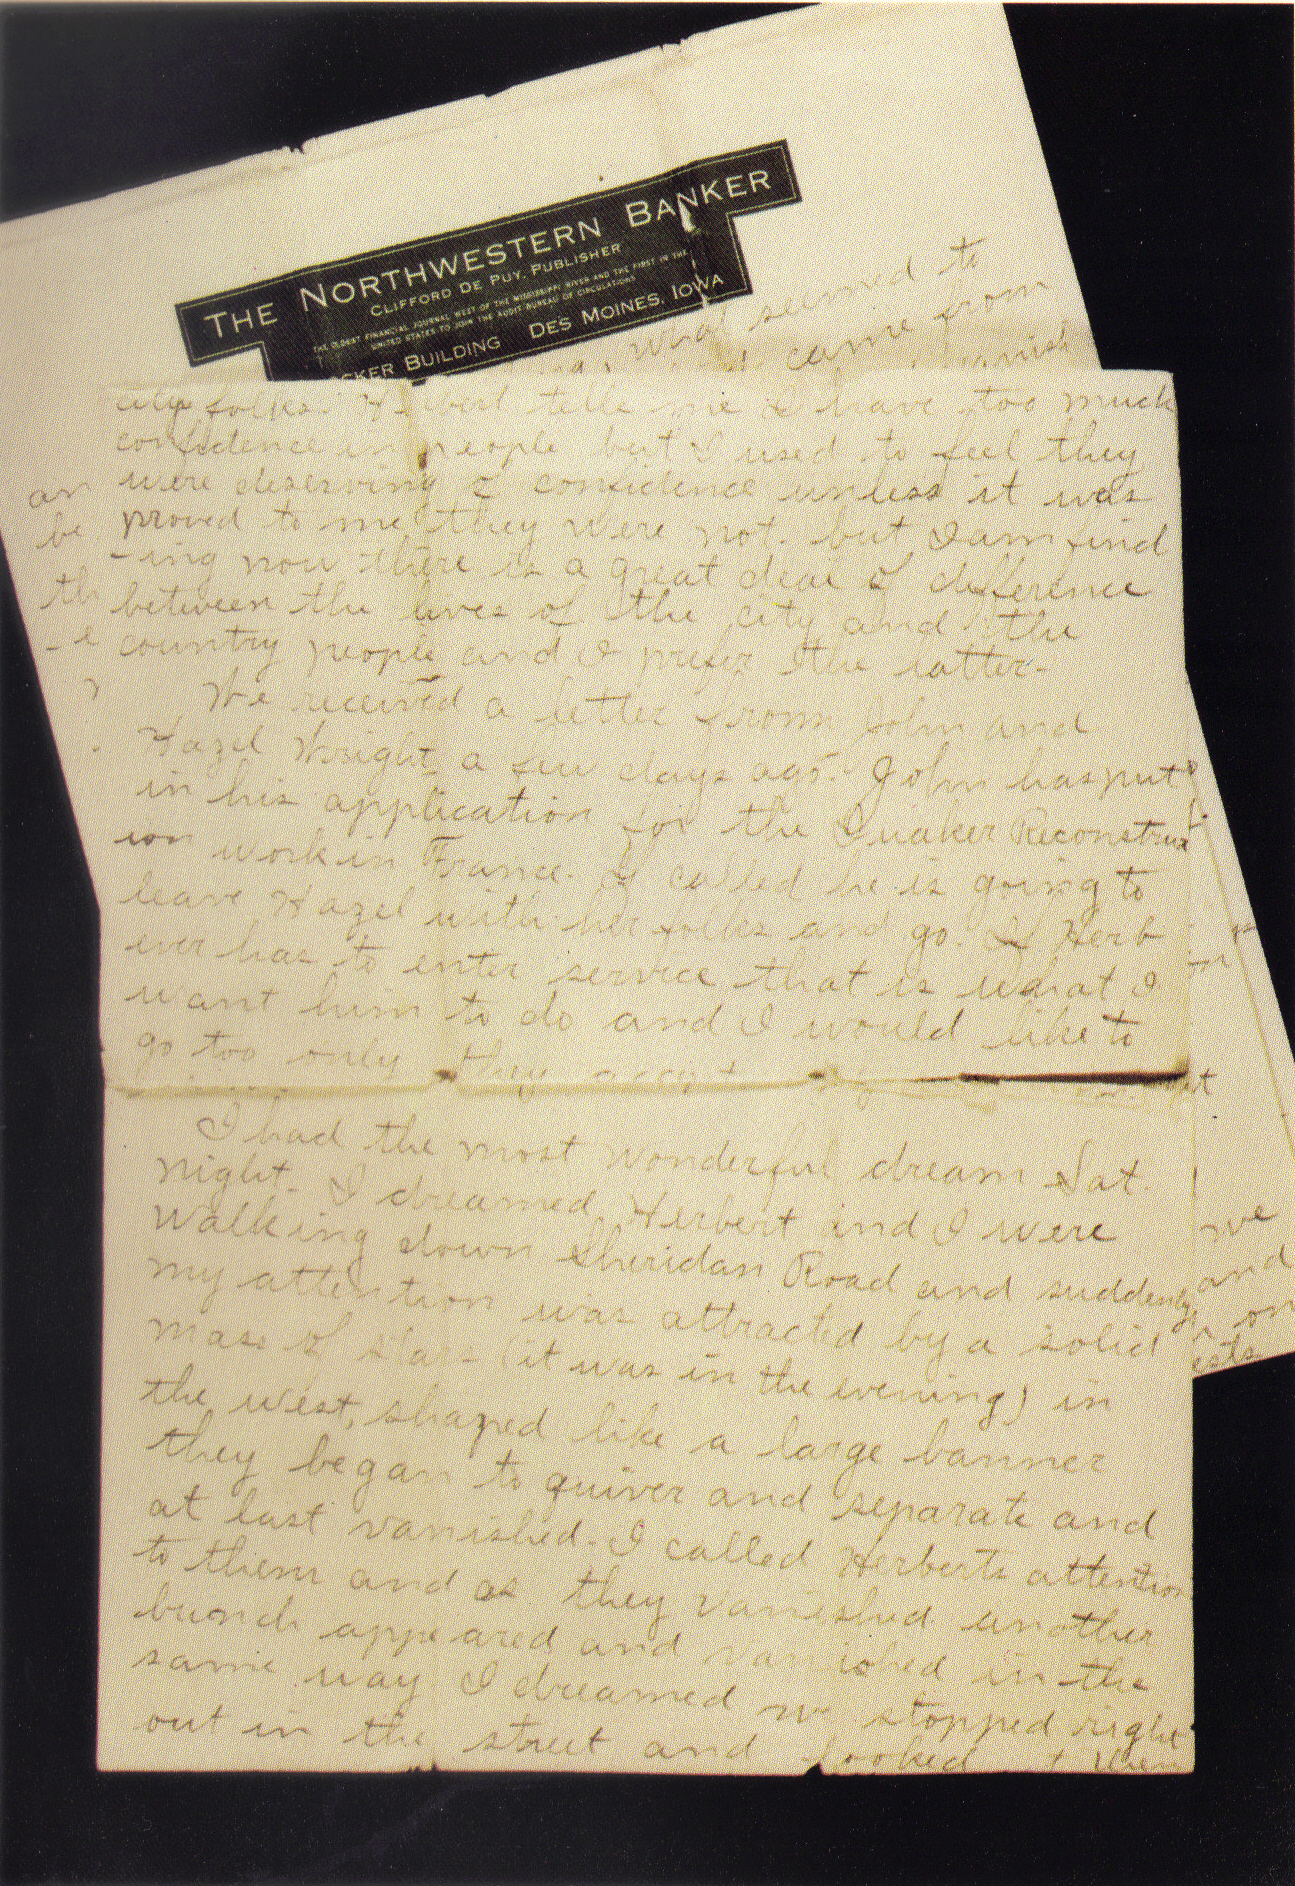 THE NORTHWESTERN BANKER
CLIFFORD DE PUY, PUBLISHER
THE OLDEST FINANCIAL JOURNAL WEST OF THE MISSISSIPPI RIVER AND THE FIRST IN THE
UNITED STATES TO JOIN THE AUDIT BUREAU OF CIRCULATIONS
CKER BUILDING DES MOINES, IOWA
what seemed to
came from
city folks. Herbert tells me I have too much
confidence in people but I used to feel they
were deserving of confidence unless it was
proved to me they were not. but I am find
-ing now there is a great deal of difference
between the lives of the city and the
country people and I prefer the latter.
We received a letter from John and
Hazel Wright a few days ago. John has put
in his application for the Quaker Reconstruct
ion work in France. If called he is going to
leave Hazel with her folks and go. If Herb
ever has to enter service that is what I
want him to do and I would like to
go too only they
I had the most wonderful dream Sat.
night. I dreamed Herbert and I were
walking down Sheridan Road and suddenly
my attention was attracted by a solid
mass of stars (it was in the evening) in
the west, shaped like a large banner
they began to quiver and separate and
at last vanished. I called Herberts attention
to them and as they vanished another
bunch appeared and vanished in the
same way I dreamed we stopped right
out in the street and looked
an
be
th
we
and
on
ests